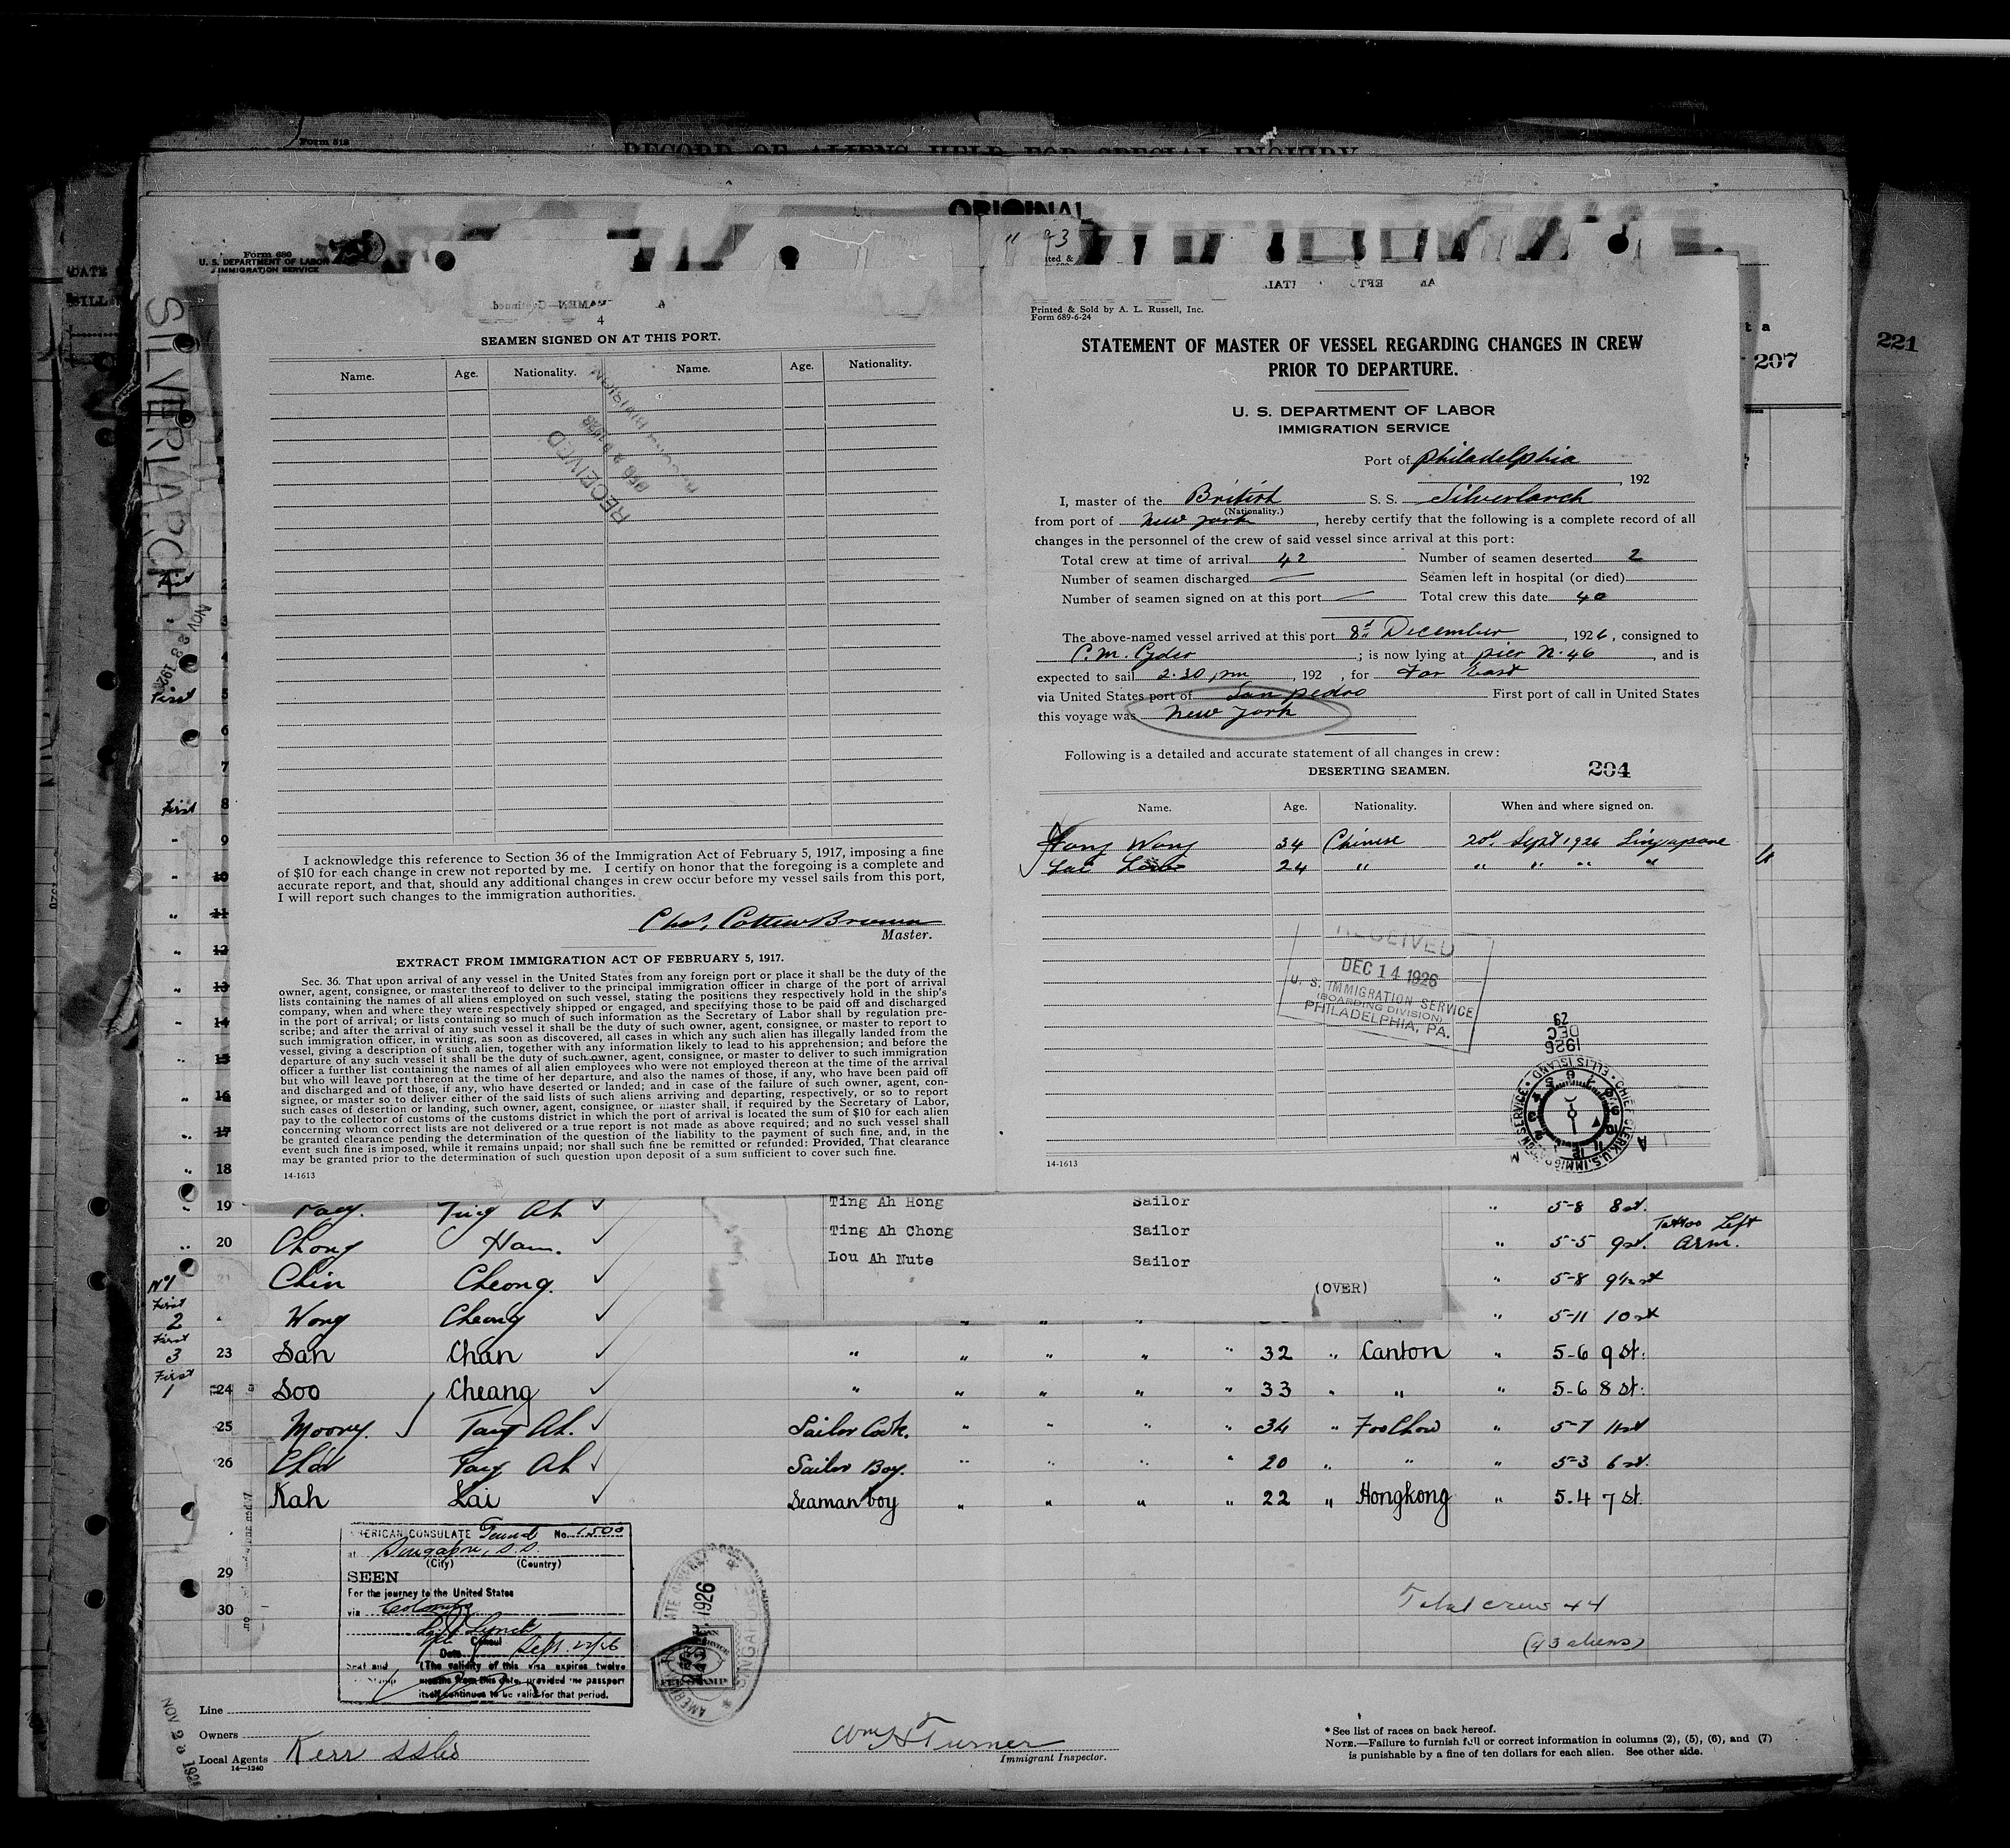 Form 518
RECORD OF ALIENS HELD FOR SPECIAL INQUIRY
ORIGINAL
Form 680
U. S. DEPARTMENT OF LABOR
IMMIGRATION SERVICE
DATE
221
207
SILVERLARCH
NOV 23 192
4
SEAMEN SIGNED ON AT THIS PORT.
Name. Age. Nationality. Name. Age. Nationality.
RECEIVED
I acknowledge this reference to Section 36 of the Immigration Act of February 5, 1917, imposing a fine
of $10 for each change in crew not reported by me. I certify on honor that the foregoing is a complete and
accurate report, and that, should any additional changes in crew occur before my vessel sails from this port,
I will report such changes to the immigration authorities.
Chas. Cotten Brown
Master.
EXTRACT FROM IMMIGRATION ACT OF FEBRUARY 5, 1917.
Sec. 36. That upon arrival of any vessel in the United States from any foreign port or place it shall be the duty of the
owner, agent, consignee, or master thereof to deliver to the principal immigration officer in charge of the port of arrival
lists containing the names of all aliens employed on such vessel, stating the positions they respectively hold in the ship's
company, when and where they were respectively shipped or engaged, and specifying those to be paid off and discharged
in the port of arrival; or lists containing so much of such information as the Secretary of Labor shall by regulation pre-
scribe; and after the arrival of any such vessel it shall be the duty of such owner, agent, consignee, or master to report to
such immigration officer, in writing, as soon as discovered, all cases in which any such alien has illegally landed from the
vessel, giving a description of such alien, together with any information likely to lead to his apprehension; and before the
departure of any such vessel it shall be the duty of such owner, agent, consignee, or master to deliver to such immigration
officer a further list containing the names of all alien employees who were not employed thereon at the time of the arrival
but who will leave port thereon at the time of her departure, and also the names of those, if any, who have been paid off
and discharged and of those, if any, who have deserted or landed; and in case of the failure of such owner, agent, con-
signee, or master so to deliver either of the said lists of such aliens arriving and departing, respectively, or so to report
such cases of desertion or landing, such owner, agent, consignee, or master shall, if required by the Secretary of Labor,
pay to the collector of customs of the customs district in which the port of arrival is located the sum of $10 for each alien
concerning whom correct lists are not delivered or a true report is not made as above required; and no such vessel shall
be granted clearance pending the determination of the question of the liability to the payment of such fine, and, in the
event such fine is imposed, while it remains unpaid; nor shall such fine be remitted or refunded: Provided, That clearance
may be granted prior to the determination of such question upon deposit of a sum sufficient to cover such fine.
14-1613
Printed & Sold by A. L. Russell, Inc.
Form 689-6-24
STATEMENT OF MASTER OF VESSEL REGARDING CHANGES IN CREW
PRIOR TO DEPARTURE.
U. S. DEPARTMENT OF LABOR
IMMIGRATION SERVICE
Port of Philadelphia
, 192
I, master of the British S. S. Silverlarch
(Nationality.)
from port of New York , hereby certify that the following is a complete record of all
changes in the personnel of the crew of said vessel since arrival at this port:
Total crew at time of arrival 42 Number of seamen deserted 2
Number of seamen discharged — Seamen left in hospital (or died)
Number of seamen signed on at this port — Total crew this date 40
The above-named vessel arrived at this port 8th December , 1926, consigned to
C. M. Cyder ; is now lying at pier N. 46 , and is
expected to sail 2.30 pm , 192 , for Far East
via United States port of San pedro First port of call in United States
this voyage was New York
Following is a detailed and accurate statement of all changes in crew:
DESERTING SEAMEN. 204
Name. Age. Nationality. When and where signed on.
Wong 34 Chinese 20th Sept 1926 Singapore
24 " " " " "
RECEIVED
DEC 14 1926
U. S. IMMIGRATION SERVICE
(BOARDING DIVISION)
PHILADELPHIA, PA.
1926
DEC
29
CHIEF CLERK, U.S. IMMIGRATION SERVICE • ELLIS ISLAND •
14-1613
Ting Ah Hong Sailor
Ting Ah Chong Sailor
Lou Ah Nute Sailor
(OVER)
19 Ting Ah " 5-8 8 st.
20 Chong Ham. " 5-5 9 st. Tattoo Left Arm.
No 1 21 Chin Cheong. " 5-8 9½ st
First 2 Wong Cheong " 5-11 10 st
First 3 23 San Chan " " " " " 32 " Canton " 5-6 9 St.
First 1 24 Soo Cheang " " " " " 33 " " " 5-6 8 St.
25 Moony. Tang Ah. Sailor Cook. " " " " 34 " FooChow " 5-7 11 st
26 Ah Sailor Boy. " " " " 20 " " " 5-3 6 st.
Kah Lai Seaman boy " " " " 22 " Hongkong " 5.4 7 St.
29
30
AMERICAN CONSULATE General No. 1500
at Singapore, S.S.
(City) (Country)
SEEN
For the journey to the United States
via Colombo
Lynch
Consul
Date Sept. 22/26
(The validity of this visa expires twelve
months from this date, provided the passport
itself continues to be valid for that period.
1926
Total crew 44
(43 aliens)
NOV 23 192
Line
Owners
Local Agents Kerr SS Co
14—1240
Wm H Turner
Immigrant Inspector.
* See list of races on back hereof.
NOTE.—Failure to furnish full or correct information in columns (2), (5), (6), and (7)
is punishable by a fine of ten dollars for each alien. See other side.